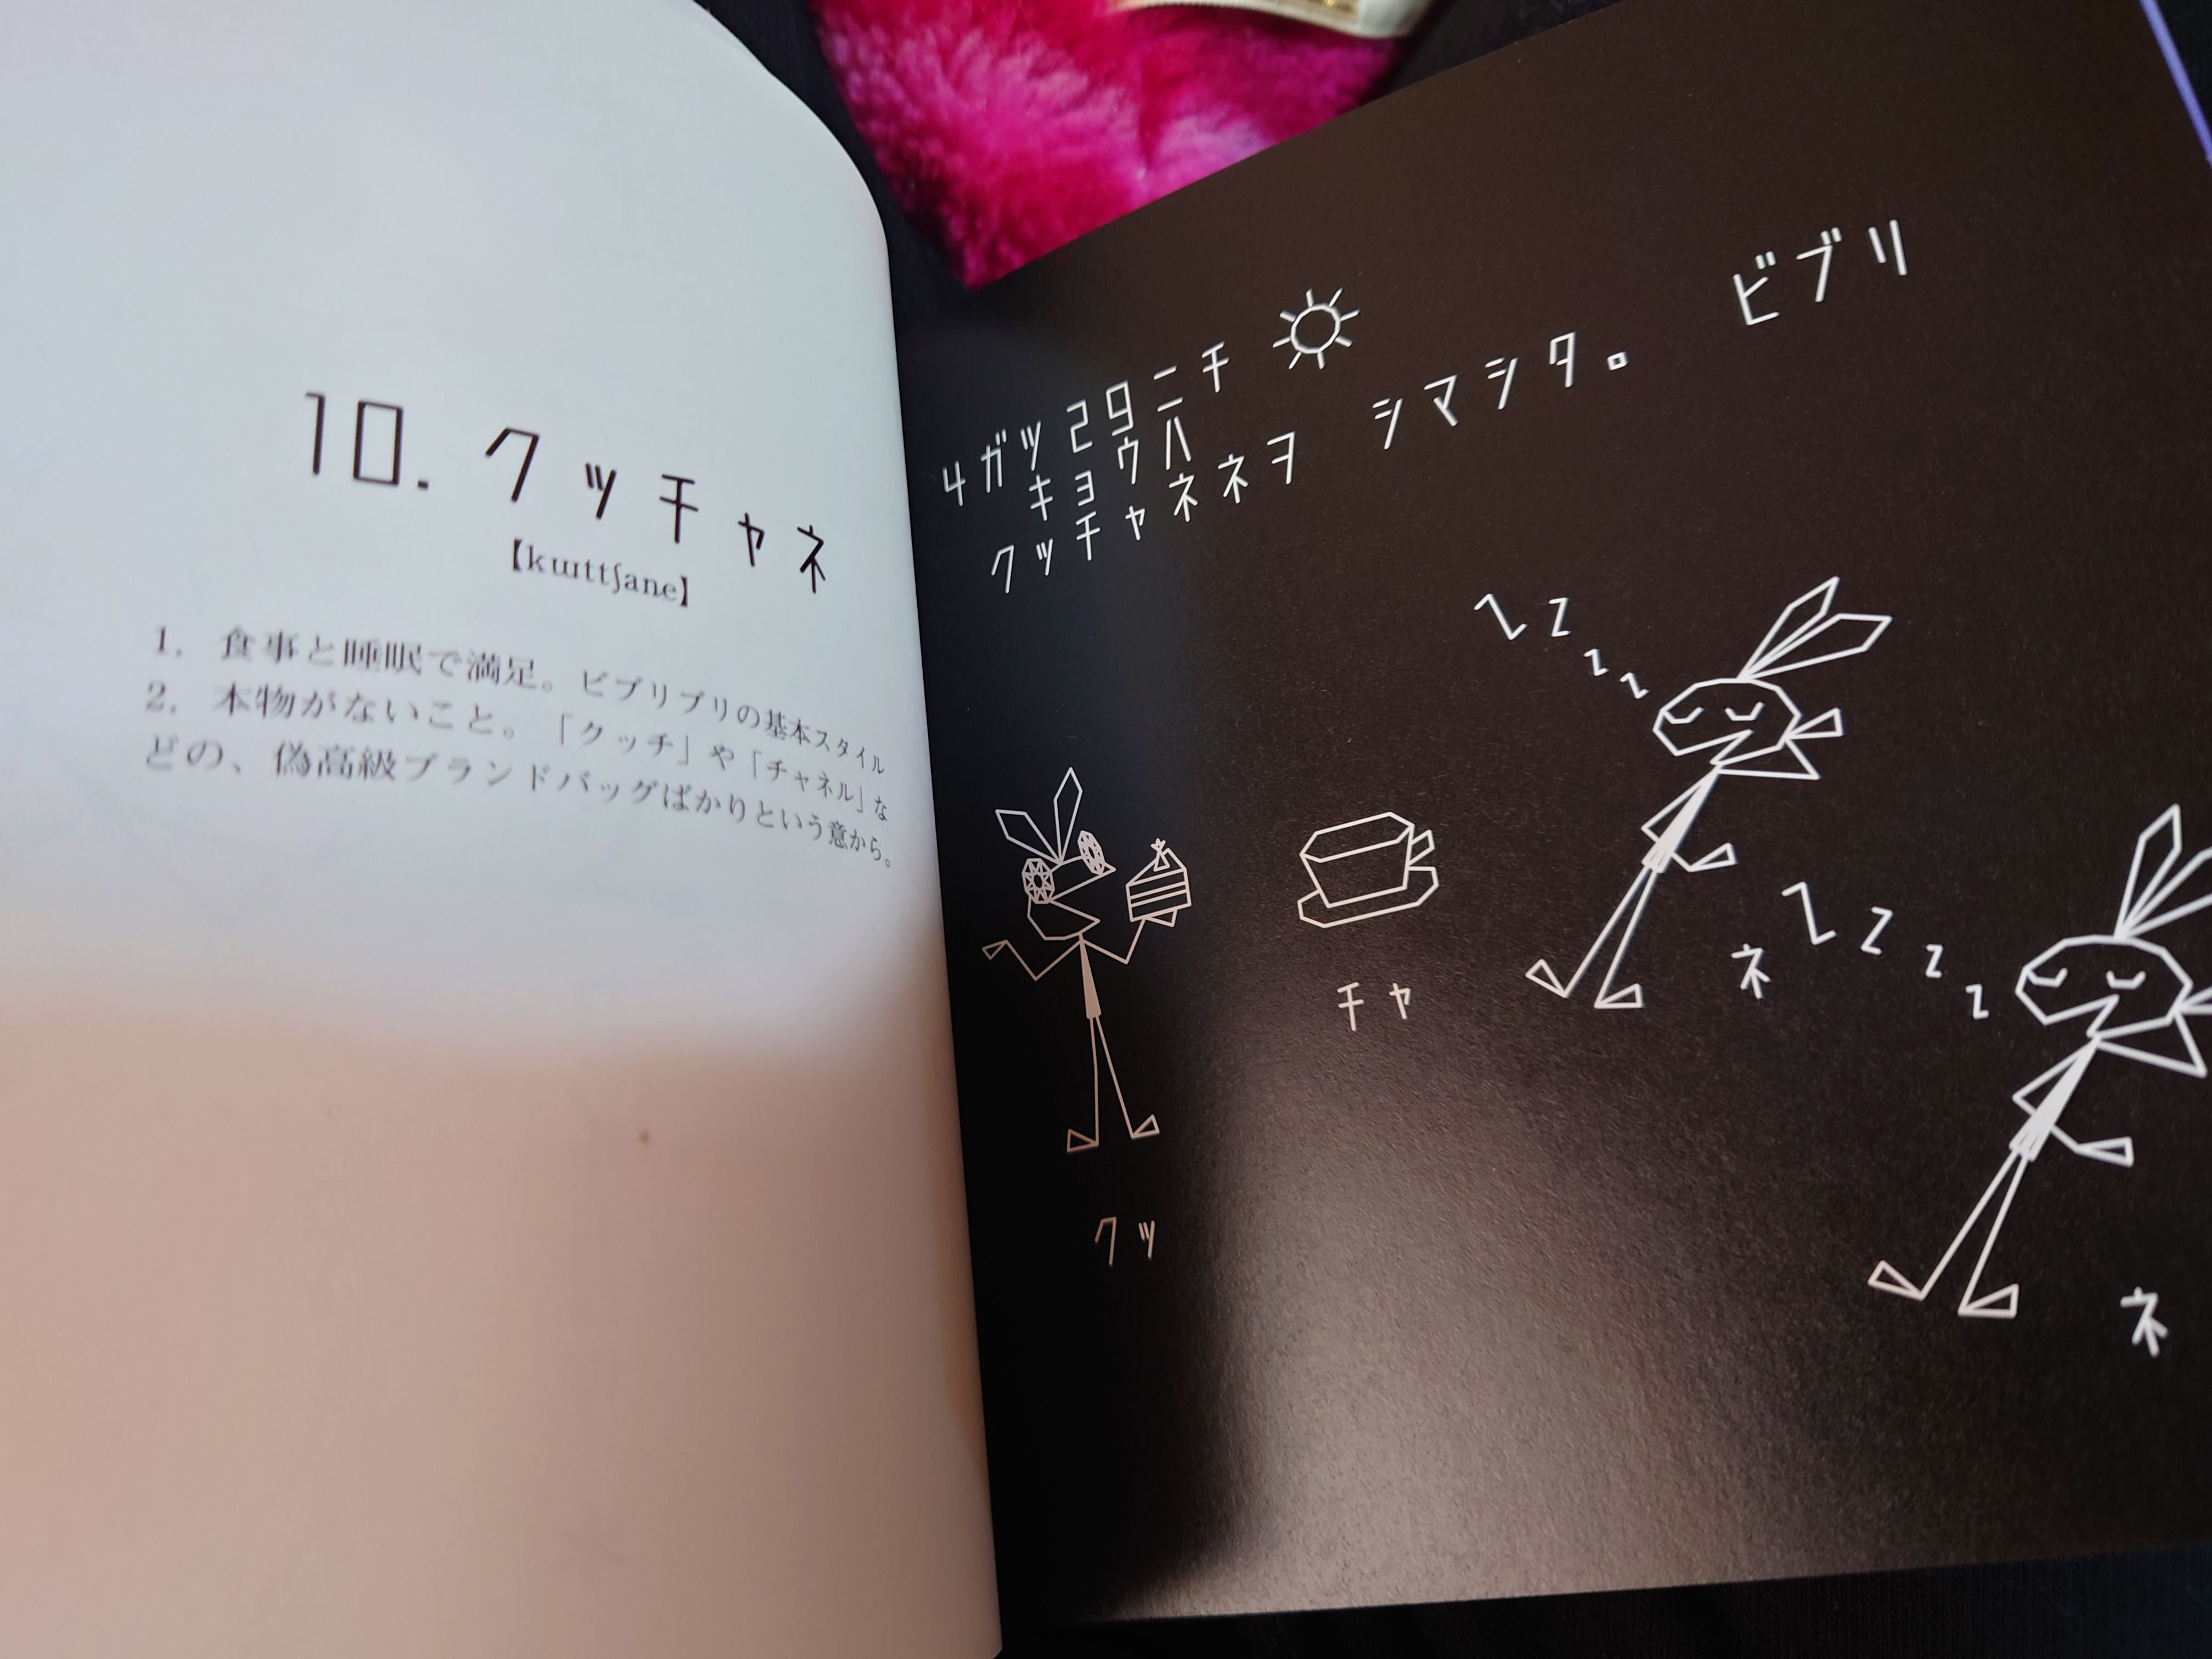 10. クッチャネ
【kɯttʃane】
1. 食事と睡眠で満足。ビブリブリの基本スタイル
2. 本物がないこと。「クッチ」や「チャネル」な
どの、偽高級ブランドバッグばかりという意から。
4ガツ29ニチ
キョウハ
クッチャネネヲ シマシタ。 ビブリ
zzzz
チャ
ネ
zzzz
クッ
ネ